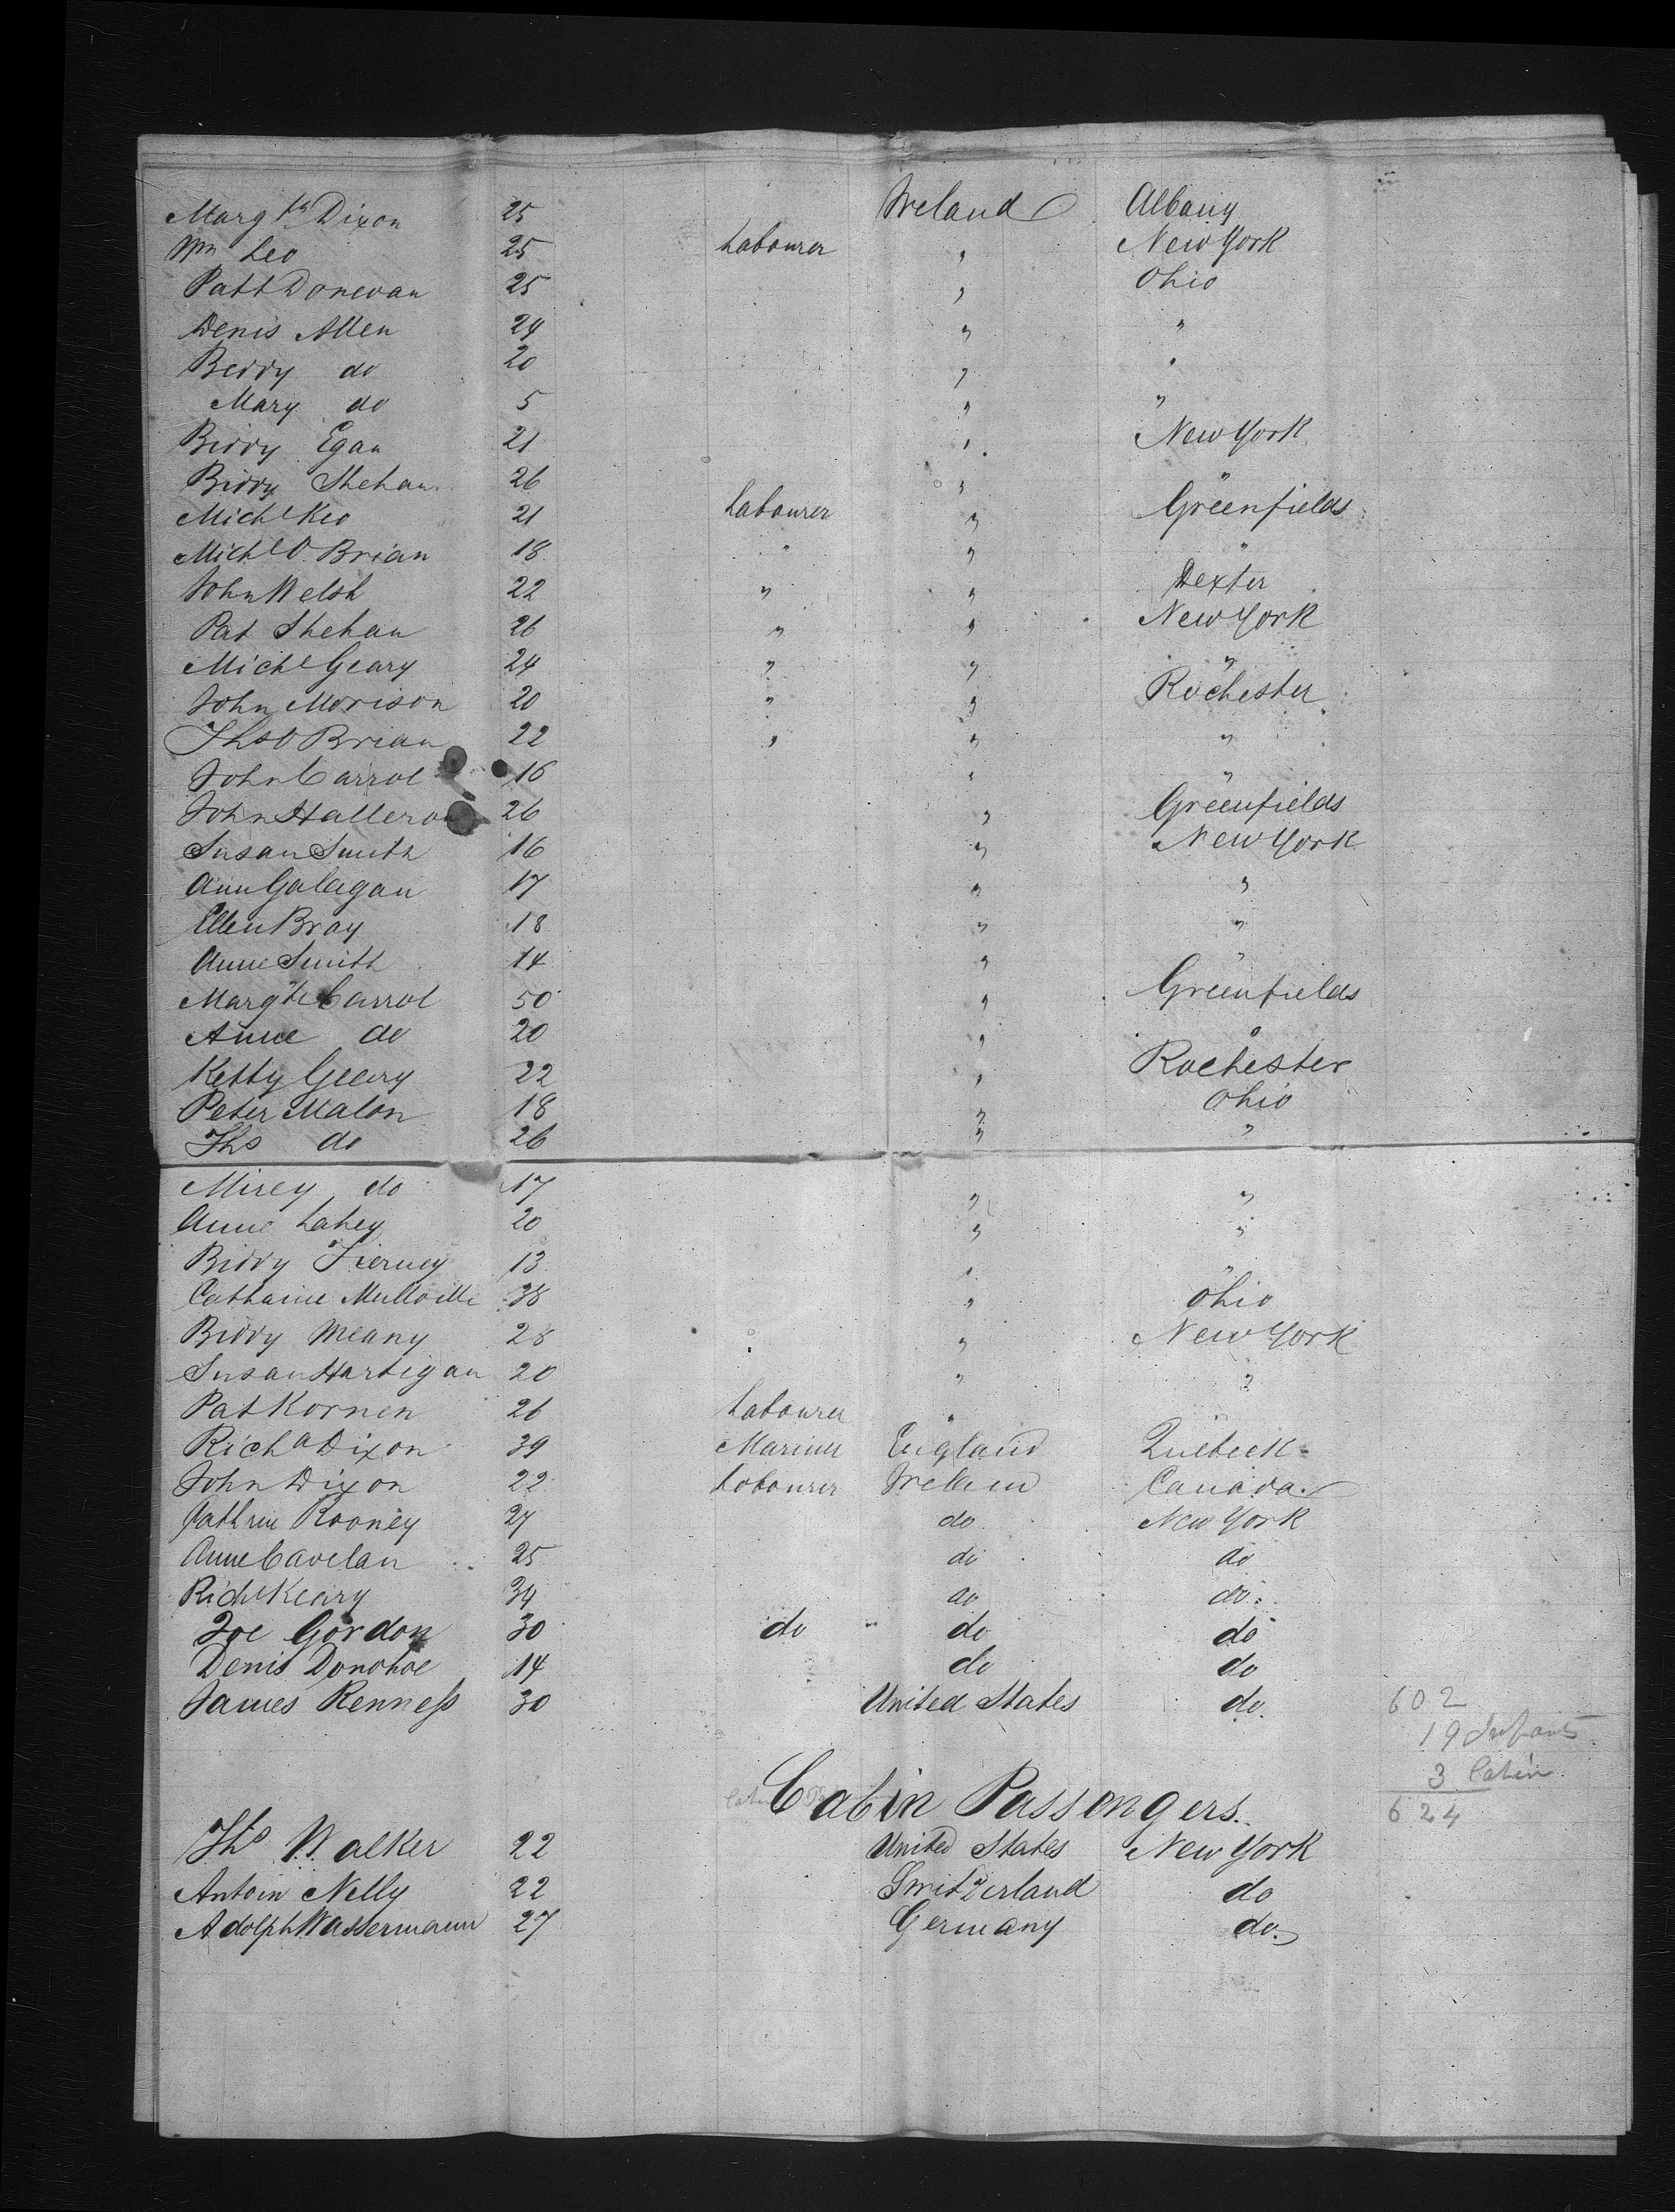 Margt Dixon 25 Ireland Albany
Wm Leo 25 Labourer " New York
Patt Donevan 25 " Ohio
Denis Allen 24 " "
Beddy do 20 " "
Mary do 5 " "
Biddy Egan 21 " New York
Biddy Shehan 26 " "
Michl Keo 21 Labourer " Greenfields
Michl O Brian 18 " " "
John Welsh 22 " " Dexter
Pat Shehan 26 " " New York
Michl Geary 24 " " "
John Morison 20 " " Rochester
Ths O Brian 22 " " "
John Carrol 16 " "
John Halleron 26 " Greenfields
Susan Smith 16 " New York
Ann Galegan 17 " "
Ellen Bray 18 " "
Anne Smith 14 " "
Margte Carrol 50 " Greenfields
Anne do 20 " "
Ketty Geary 22 " Rochester
Peter Malon 18 " Ohio
Ths do 26 " "
Mirey do 17 " "
Anne Lahey 20 " "
Biddy Tierney 13 " "
Catharine 38 " Ohio
Biddy Meany 28 " New York
Susan Hartigan 20 " "
Pat Kornen 26 Labourer " "
Richd Dixon 39 Mariner England Quebeck
John Dixon 22 Labourer Ireland Canada
Cathrine Rooney 24 do New York
Anne Cavelan 25 do do
Richd Keary 34 do do
Joe Gordon 30 do do do
Denis Donohoe 14 do do
James Renness 30 United States do
602
19 Infants
3 Cabin
624
Cabin Passengers.
Ths Walker 22 United States New York
Antoin Nelly 22 Switzerland do
Adolph Wassermann 27 Germany do